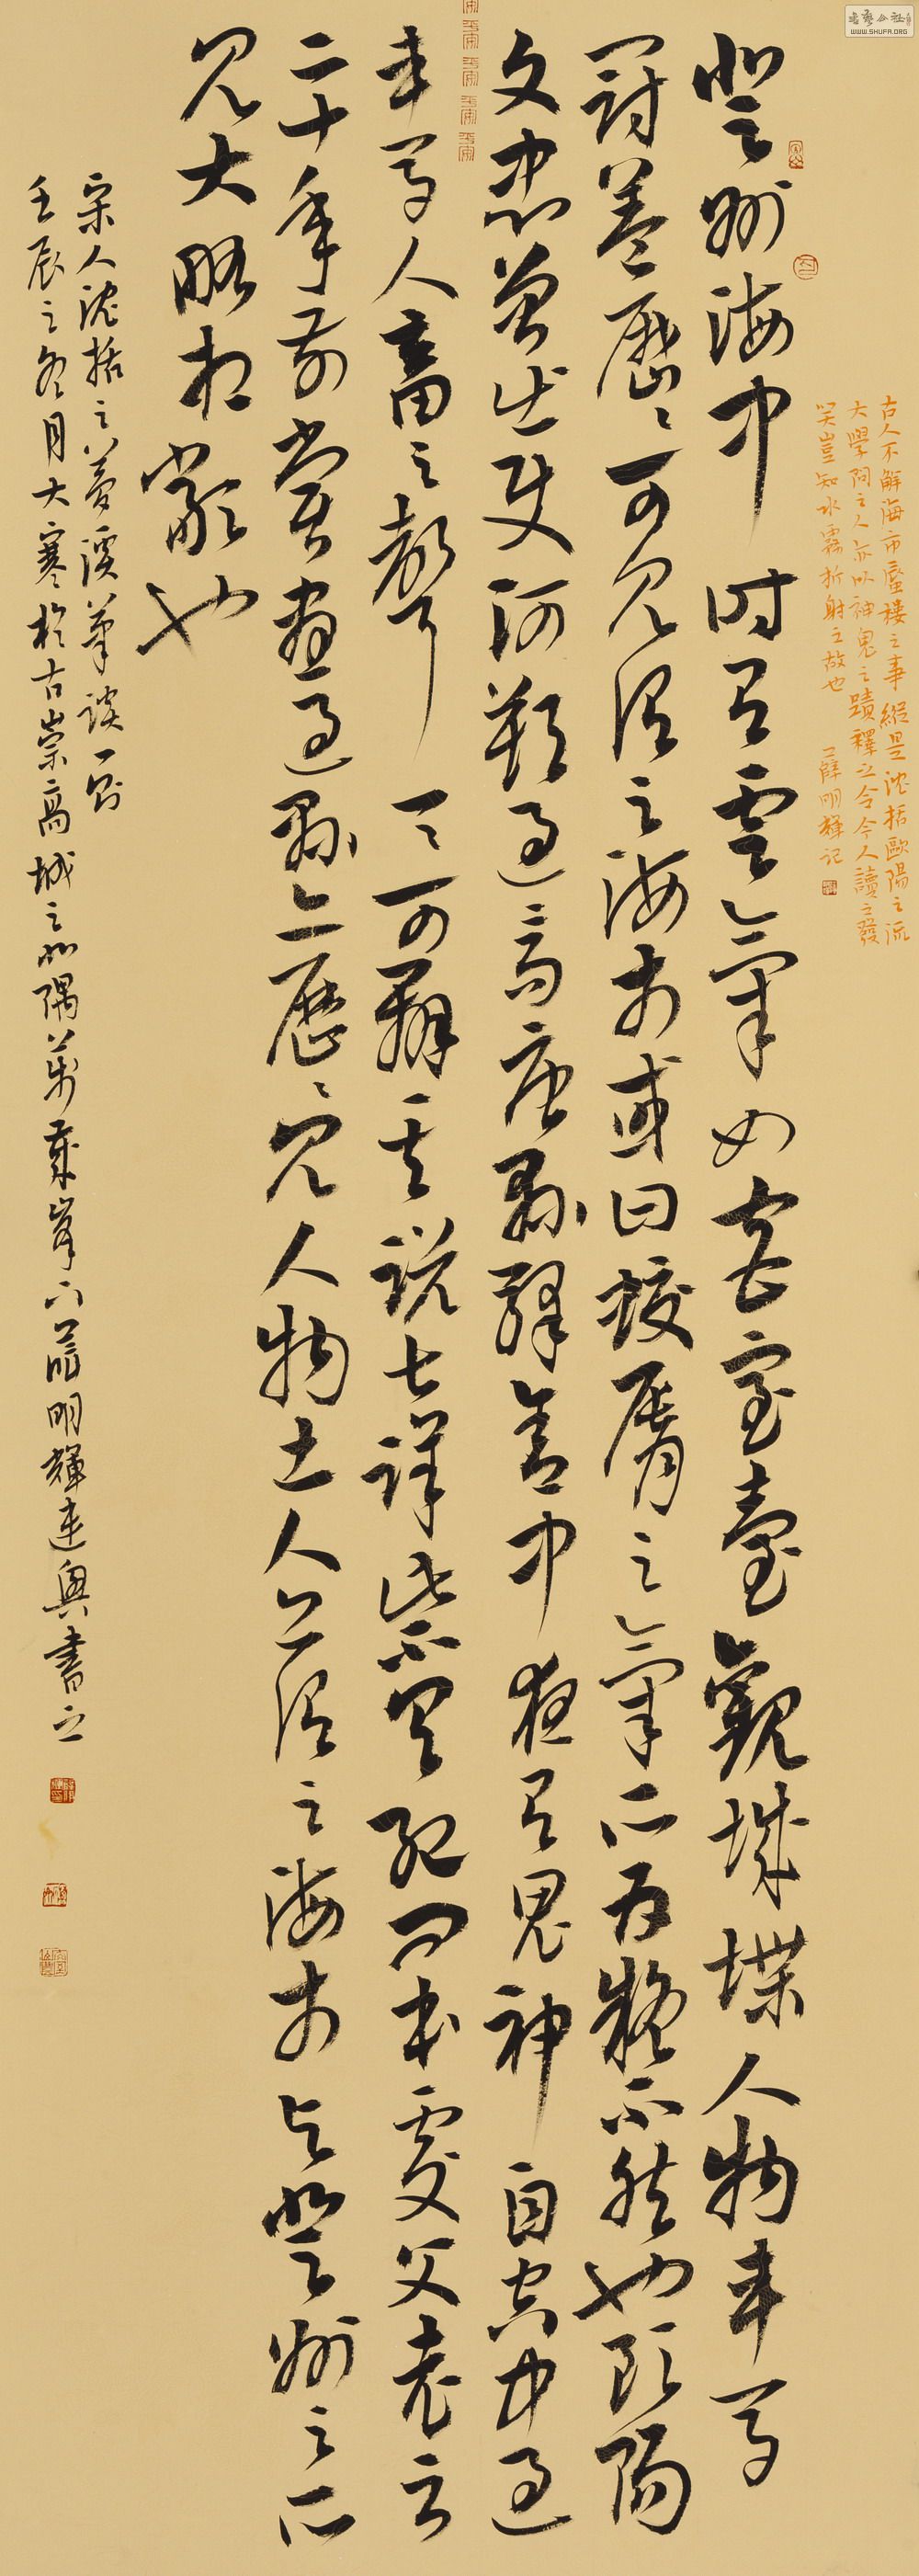 書藝公社
WWW.SHUFA.ORG
古人不解海市蜃樓之事縱是沈括歐陽之流
大學問之人亦以神鬼之蹟釋之令今人讀之發
笑豈知水霧折射之故也 薛明輝記
登州海中時有雲氣如宮室臺觀城堞人物車馬
冠蓋歷〻可見謂之海市或曰蛟蜃之氣所為疑不然也歐陽
文忠曾出使河朔過高唐縣驛舍中夜有鬼神自空中過
車馬人畜之聲一〻可辨其說甚詳此不具紀問本處父老云
二十年前嘗晝過縣亦歷〻見人物土人亦謂之海市與登州之所
見大略相類也
宋人沈括之夢溪筆談一則
壬辰之冬月大寒於古崇高城之北隅萬歲峯下薛明輝興書之